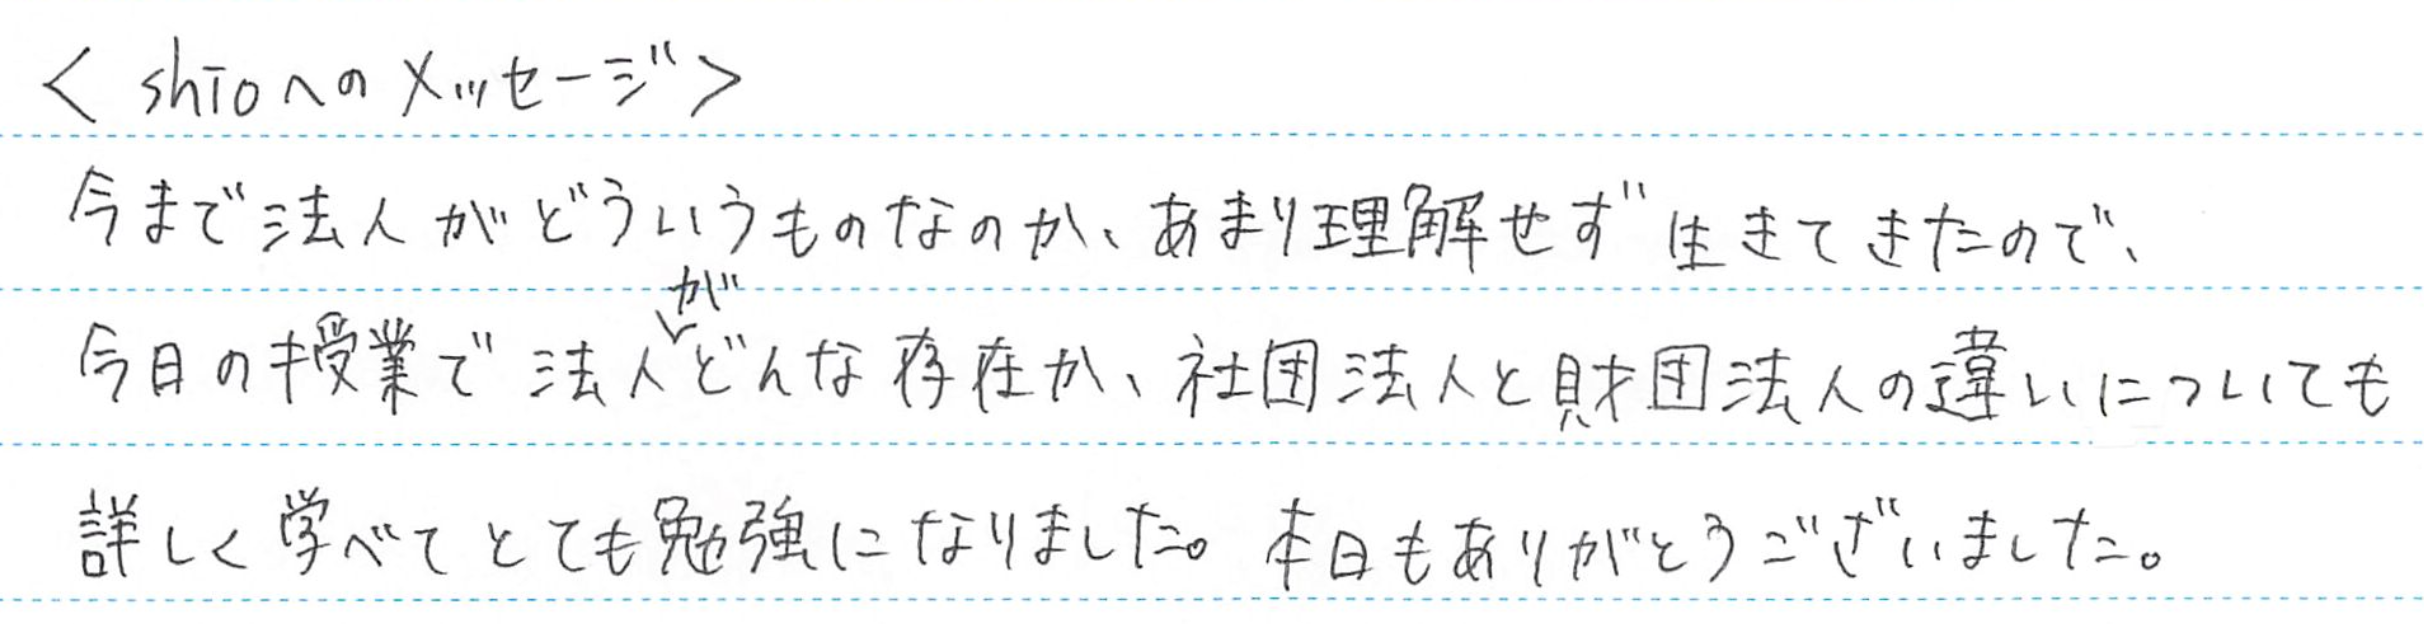 < shioへのメッセージ>
今まで法人がどういうものなのか、あまり理解せず生きてきたので、
今日の授業で法人がどんな存在か、社団法人と財団法人の違いについても
詳しく学べてとても勉強になりました。本日もありがとうございました。